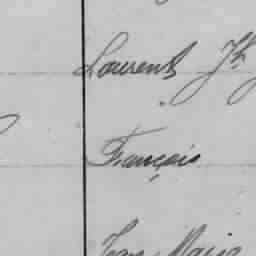 Laurent Jh
François
Jean Marie